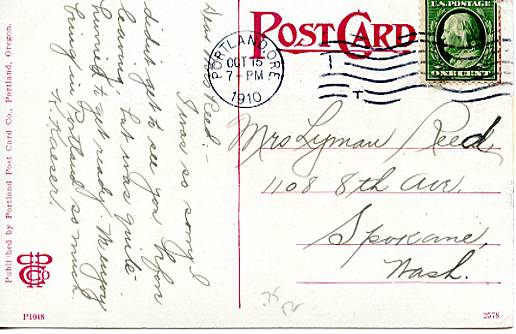 POST CARD
U.S. POSTAGE
ONE CENT
PORTLAND, ORE.
OCT 15
7 - PM
1910
Dear Mrs Reed: -
I was so sorry I
didn't get to see you before
leaving but was quite
hurried to get ready. Am
Portland so much.
Kaeser.
Mrs Lyman Reed,
1108 8th Ave,
Spokane,
Wash.
Published by Portland Post Card Co., Portland, Oregon.
P1048
2578